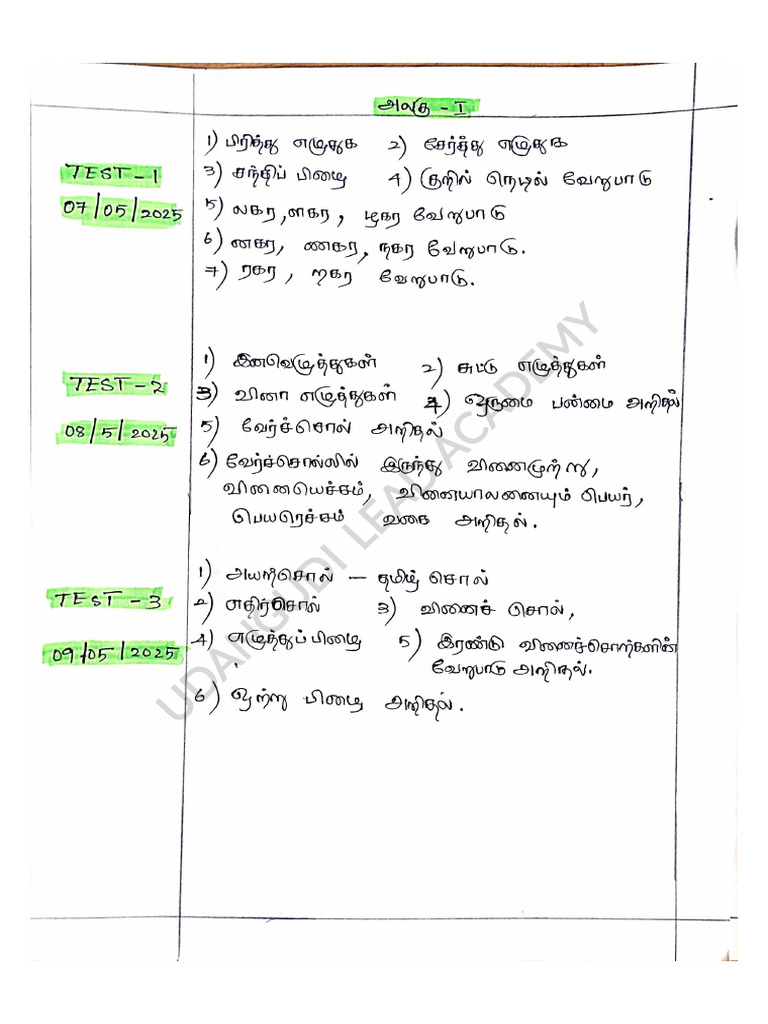 அலகு - I
1) பிரித்து எழுதுக 2) சேர்த்து எழுதுக
TEST - 1
3) சந்திப் பிழை 4) குறில் நெடில் வேறுபாடு
07/05/2025
5) லகர, ளகர, ழகர வேறுபாடு
6) னகர, ணகர, நகர வேறுபாடு.
7) ரகர, றகர வேறுபாடு.
1) இனவெழுத்துகள் 2) சுட்டு எழுத்துகள்
TEST - 2
3) வினா எழுத்துகள் 4) ஒருமை பன்மை அறிதல்
08/5/2025
5) வேர்ச்சொல் அறிதல்
6) வேர்ச்சொல்லில் இருந்து வினைமுற்று,
வினையெச்சம், வினையாலணையும் பெயர்,
பெயரெச்சம் வகை அறிதல்.
1) அயற்சொல் – தமிழ் சொல்
TEST - 3
2) எதிர்சொல் 3) வினைச் சொல்,
4) எழுத்துப் பிழை 5) இரண்டு வினைச்சொற்களின்
09/05/2025
வேறுபாடு அறிதல்.
6) ஒற்று பிழை அறிதல்.
UDANGUDI LEAD ACADEMY